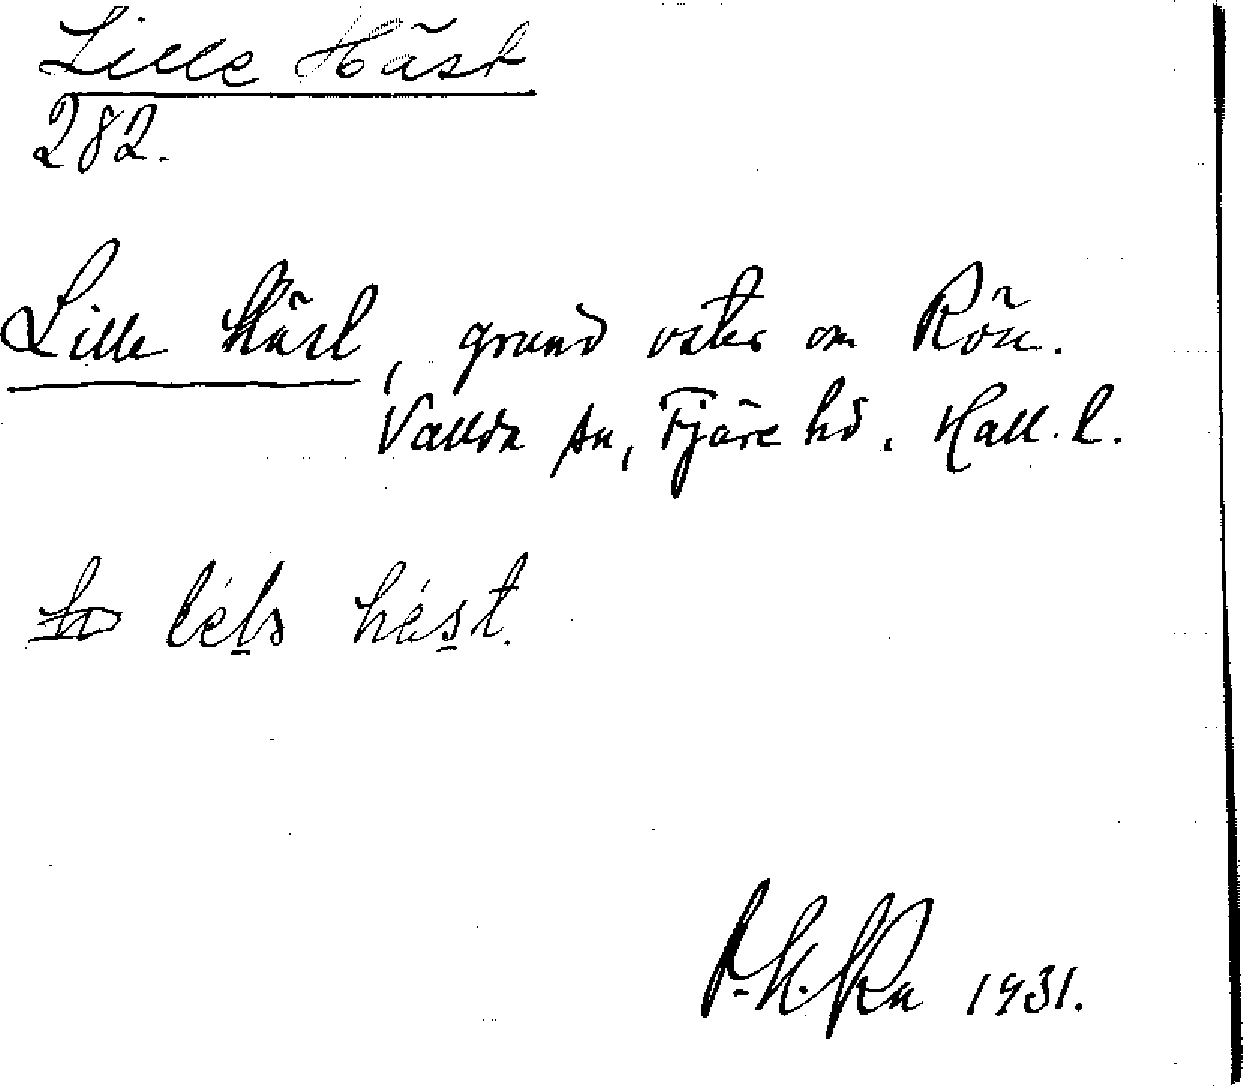 Lille Häst
282.
Lille Häst, grund öster om Rön.
Vallda sn, Fjäre hd. Hall. l.
hést.
1931.